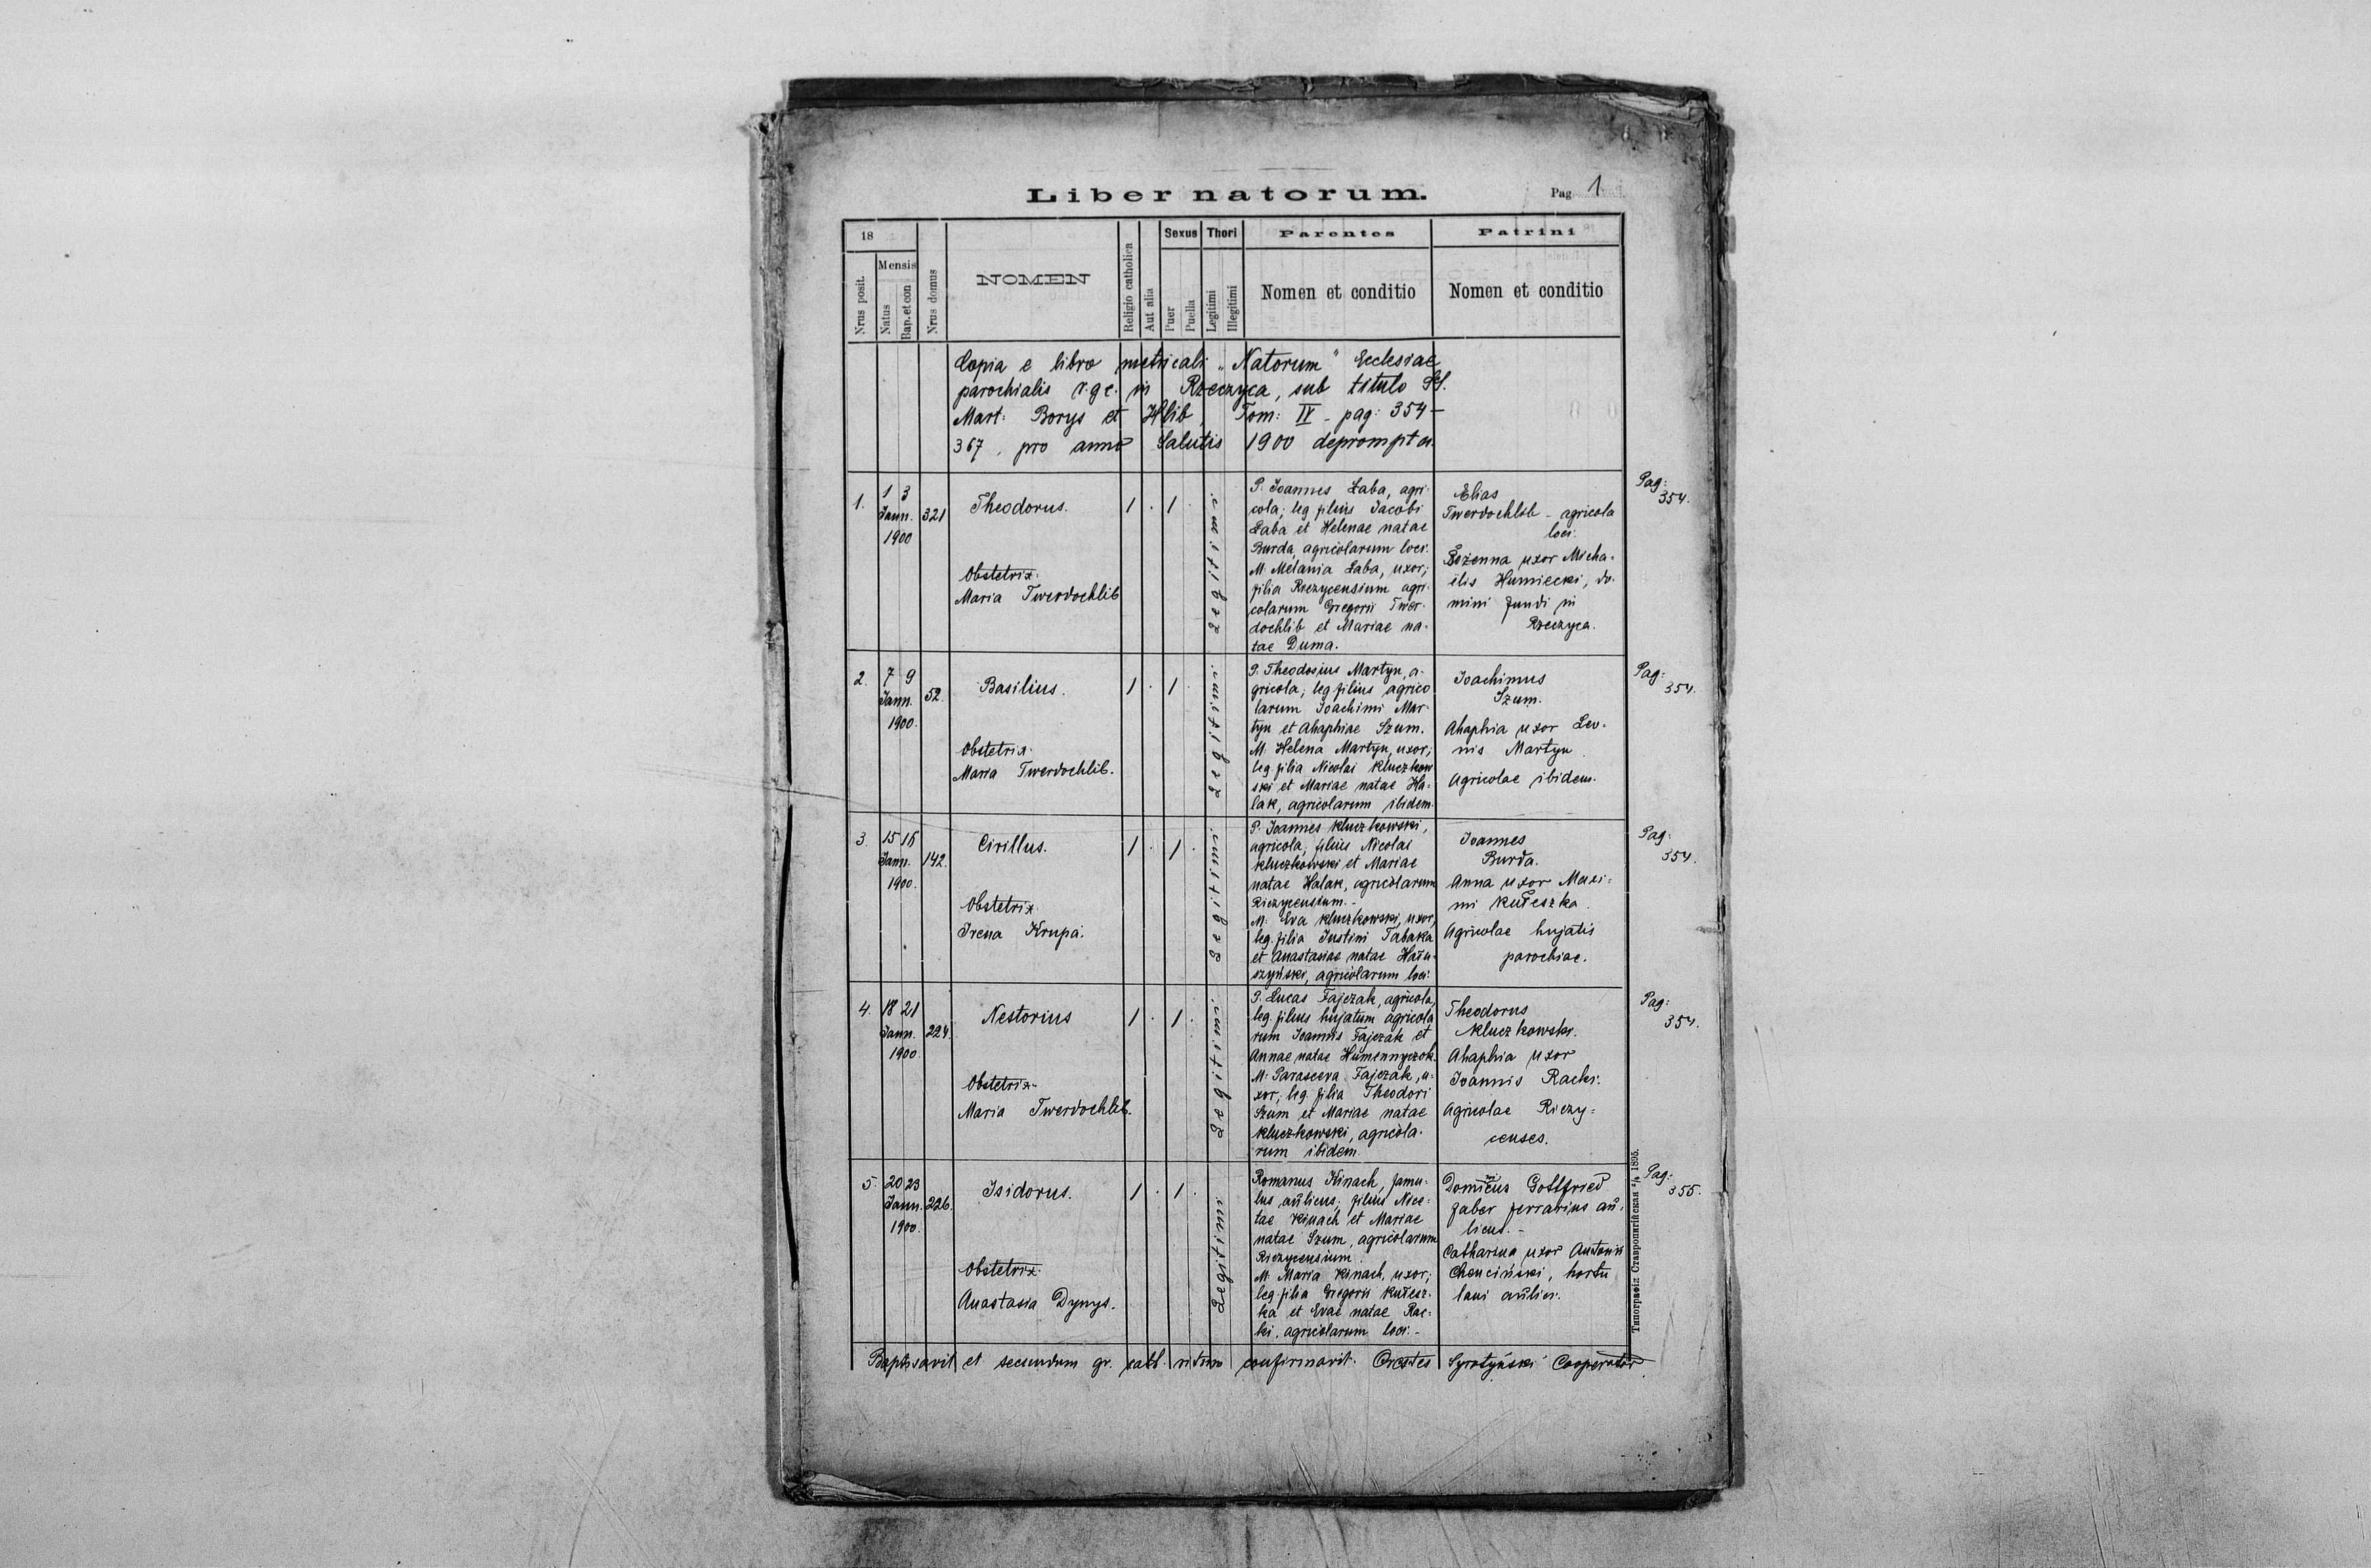 Liber natorum.
Pag 1
18
Mensis
Nrus posit.
Natus
Bap. et con
Nrus domus
NOMEN
Religio catholica
Aut alia
Sexus
Puer
Puella
Thori
Legitimi
Illegitimi
Parentes
Nomen et conditio
Patrini
Nomen et conditio
Copia e libro metricali „Natorum" Ecclesiae
parochialis r.g.c. in Rzeczyca, sub titulo SS.
Mart: Borys et Hlib, Tom: IV - pag: 354-
367, pro anno Salutis 1900 deprompta.
1.
1 3
Jann.
1900
321
Theodorus.
Obstetrix.
Maria Twerdochlib
1 . 1 .
Legitimi.
P. Joannes Łaba, agri-
cola; leg filius Jacobi
Łaba et Helenae natae
Burda, agricolarum loci.
M. Melania Łaba, uxor;
filia Rieczycensium agri-
colarum Gregorii Twer-
dochlib et Mariae na-
tae Duma.
Elias
Twerdochlib - agricola
loci.
uxor Micha-
ilis Humiecki, do-
mini fundi in
Rzeczyca.
Pag:
354.
2.
7 9
Jann.
1900.
52.
Basilius.
Obstetrix.
Maria Twerdochlib.
1 . 1 .
Legitimi.
P. Theodosius Martyn, a-
gricola; leg filius agrico
larum Joachimi Mar-
tyn et Ahaphiae Szum.
M. Helena Martyn, uxor;
leg. filia Nicolai Kluczkow
ski et Mariae natae Ha-
lak, agricolarum ibidem.
Joachimus
Szum.
Ahaphia uxor Leo-
nis Martyn
Agricolae ibidem.
Pag:
354.
3.
15 16
Jann.
1900.
142.
Cirillus.
Obstetrix.
Irena Krupa.
1 . 1 .
Legitimi.
P. Joannes Kluczkowski,
agricola, filius Nicolai
Kluczkowski et Mariae
natae Halak, agricolarum
Rieczycensium.-
M. Eva Kluczkowski, uxor,
leg. filia Justini Tabaka
et Anastasiae natae Hału-
szyński, agricolarum loci.
Joannes
Burda.
Anna uxor Maxi-
mi Kułeszka.
Agricolae hujatis
parochiae.
Pag:
354.
4.
18 21
Jann.
1900
224.
Nestorius
Obstetrix.
Maria Twerdochlib.
1 . 1 .
Legitimi.
P. Lucas Fajczak, agricola,
leg. filius hujatum agricola
rum Joannis Fajczak et
Annae natae Humennyczok.
M. Parasceva Fajczak, u-
xor; leg. filia Theodori
Szum et Mariae natae
Kluczkowski, agricola-
rum ibidem.
Theodorus
Kluczkowski.
Ahaphia uxor
Joannis Racki.
Agricolae Rieczy-
censes.
Pag:
354.
5.
20 23
Jann.
1900.
226.
Isidorus.
Obstetrix.
Anastasia Dynys.
1 . 1 .
Legitimi
Romanus Kinach, famu-
lus aulicus; filius Nice-
tae Kinach et Mariae
natae Szum, agricolarum
Rieczycensium.
M. Maria Kinach, uxor;
leg filia Gregorii Kułesz-
ka et Evae natae Rac-
ki, agricolarum loci.-
Gottfried
faber ferrarius au-
licus.-
Catharina uxor Antonii
Chenciński, hortu
lani aulici.
Pag:
355.
Baptisavit et secundum gr. cath. ritum confirmavit. Orestes Syrotyński Cooperator.
Типографія Ставропигійская 1895.